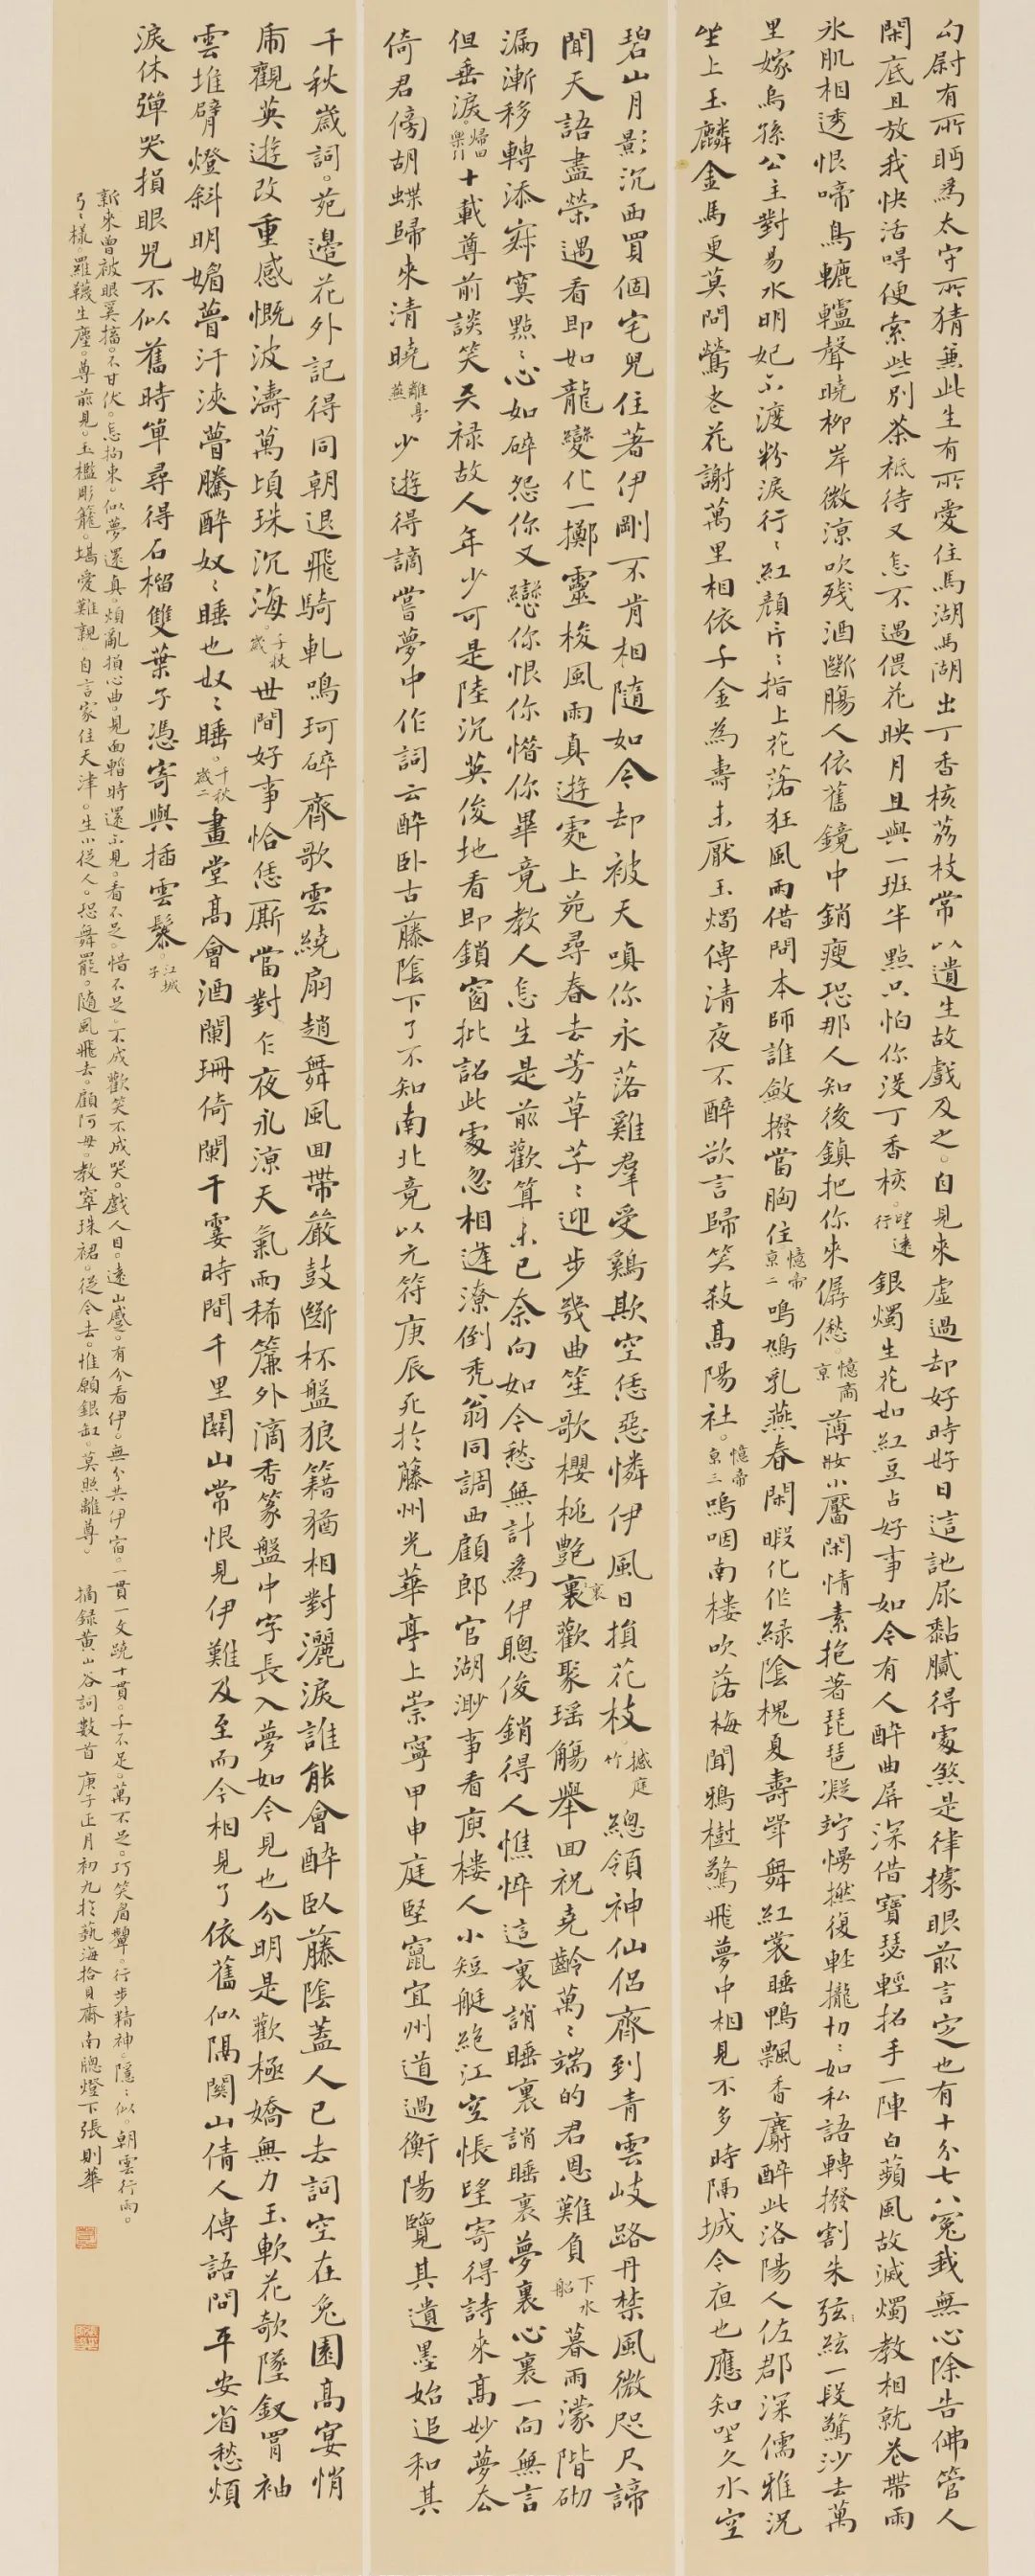 勾尉有所盻為太守所猜兼此生有所愛住馬湖馬湖出丁香核荔枝常以遺生故戲及之。自見來虛過却好時好日這訑尿黏膩得處煞是律據眼前言定也有十分七八冤我無心除告佛管人
閑底且放我快活㖀便索些別茶袛待又怎不遇偎花映月且與一班半點只怕你沒丁香核。望遠行 銀燭生花如紅豆占好事如今有人醉曲屏深借寶瑟輕招手一陣白蘋風故滅燭教相就卷帶雨
氷肌相透恨啼鳥轆轤聲曉柳岸微涼吹殘酒斷腸人依舊鏡中銷瘦恐那人知後鎮把你來僝僽。憶帝京 薄妝小靨閑情素抱著琵琶凝竚慢撚復輕攏切〻如私語轉撥割朱弦絃一段驚沙去萬
里嫁烏孫公主對易水明妃不渡粉淚行〻紅顏片〻指上花落狂風雨借問本師誰斂撥當胸住 憶帝京二 鳴鳩乳燕春閑暇化作綠陰槐夏壽斝舞紅裳睡鴨飄香麝醉此洛陽人佐郡深儒雅況
坐上玉麟金馬更莫問鶯老花謝萬里相依千金為壽未厭玉燭傳清夜不醉欲言歸笑殺高陽社。憶帝京三 嗚咽南樓吹落梅聞鴉樹驚飛夢中相見不多時隔城今夜也應知坐久水空
碧山月影沉西買個宅兒住著伊剛不肯相隨如今却被天嗔你永落雞羣受鷄欺空恁惡憐伊風日損花枝 撼庭竹 總領神仙侶齊到青雲岐路丹禁風微咫尺諦
聞天語盡榮遇看即如龍變化一擲靈梭風雨真遊處上苑尋春去芳草芊〻迎步幾曲笙歌櫻桃艷裏歡聚瑶觴舉回祝堯齡萬〻端的君恩難負 下水船 暮雨濛階砌
漏漸移轉添寂寞點〻心如碎怨你又戀你恨你惜你畢竟教人怎生是前歡算未已奈向如今愁無計為伊聰俊銷得人憔悴這裏誚睡裏誚睡裏夢裏心裏一向無言
但垂淚。歸田樂引 十載尊前談笑天禄故人年少可是陸沉英俊地看即鎖窗批詔此處忽相逢潦倒禿翁同調西顧郎官湖渺事看庾樓人小短艇絶江空悵望寄得詩來高妙夢去
倚君傍胡蝶歸來清曉 離亭燕 少遊得謫嘗夢中作詞云醉卧古藤陰下了不知南北竟以元符庚辰死於藤州光華亭上崇寧甲申庭堅竄宜州道過衡陽覽其遺墨始追和其
千秋歲詞。苑邊花外記得同朝退飛騎軋鳴珂碎齊歌雲繞扇趙舞風回帶嚴鼓斷杯盤狼籍猶相對灑淚誰能會醉臥藤陰蓋人已去詞空在兔園高宴悄
虎觀英遊改重感慨波濤萬頃珠沉海 千秋歲 世間好事恰恁厮當對乍夜永涼天氣雨稀簾外滴香篆盤中字長入夢如今見也分明是歡極嬌無力玉軟花欹墜釵罥袖
雲堆臂燈斜明媚瞢汗浹瞢騰醉奴〻睡也奴〻睡。千秋歲二 畫堂高會酒闌珊倚闌干霎時間千里關山常恨見伊難及至而今相見了依舊似隔關山倩人傳語問平安省愁煩
淚休彈哭損眼兒不似舊時單尋得石榴雙葉子憑寄與插雲鬟。江城子
新來曾被眼奚搐。不甘伏。怎拘束。似夢還真。煩亂損心曲。見面暫時還不見。看不足。惜不足。不成歡笑不成哭。戲人目。遠山蹙。有分看伊。無分共伊宿。一貫一文蹺十貫。千不足。萬不足。巧笑眉顰。行步精神。隱〻似。朝雲行雨。
弓〻樣。羅韈生塵。尊前見。玉檻彫籠。堪愛難親 自言家住天津。生小從人。恐舞罷。隨風飛去。顧阿母。教窣珠裙。從今去。惟願銀缸。莫照離尊。 摘録黄山谷詞數首 庚子正月初九於藝海拾貝齋南牕燈下張則華